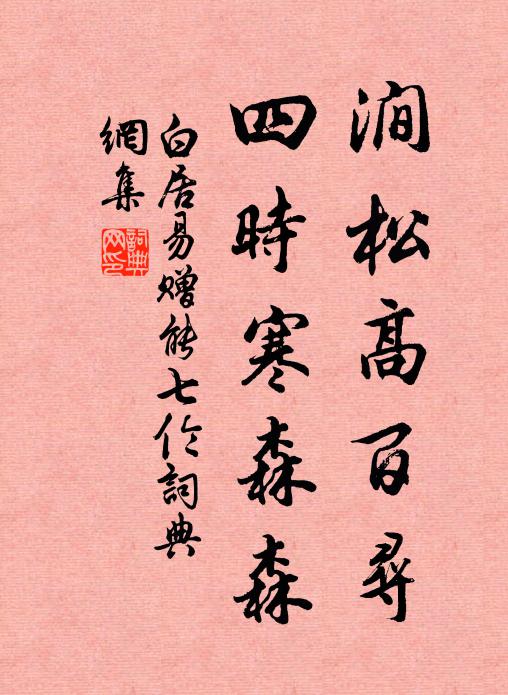 澗松高百尋
四時寒森森
白居易贈能七伦詞典
網集
詞典網印